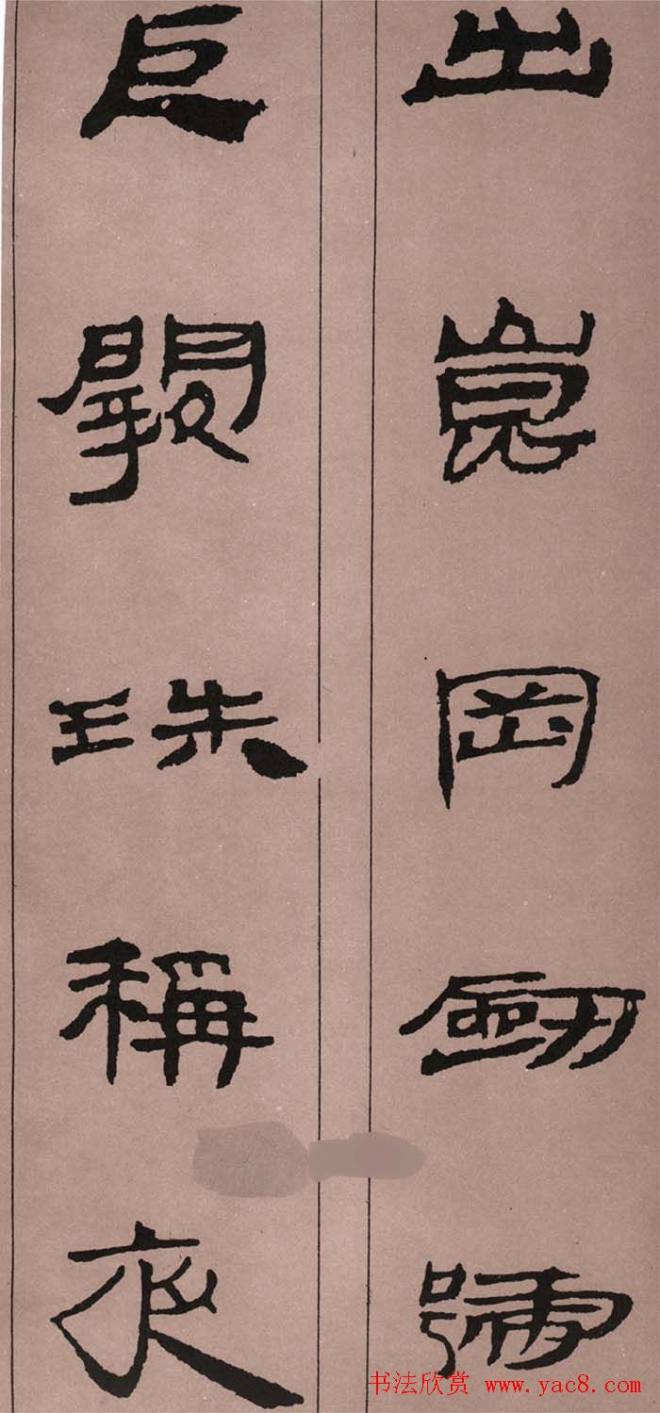 出崑岡劒號
巨闕珠稱夜
书法欣赏 www.yac8.com